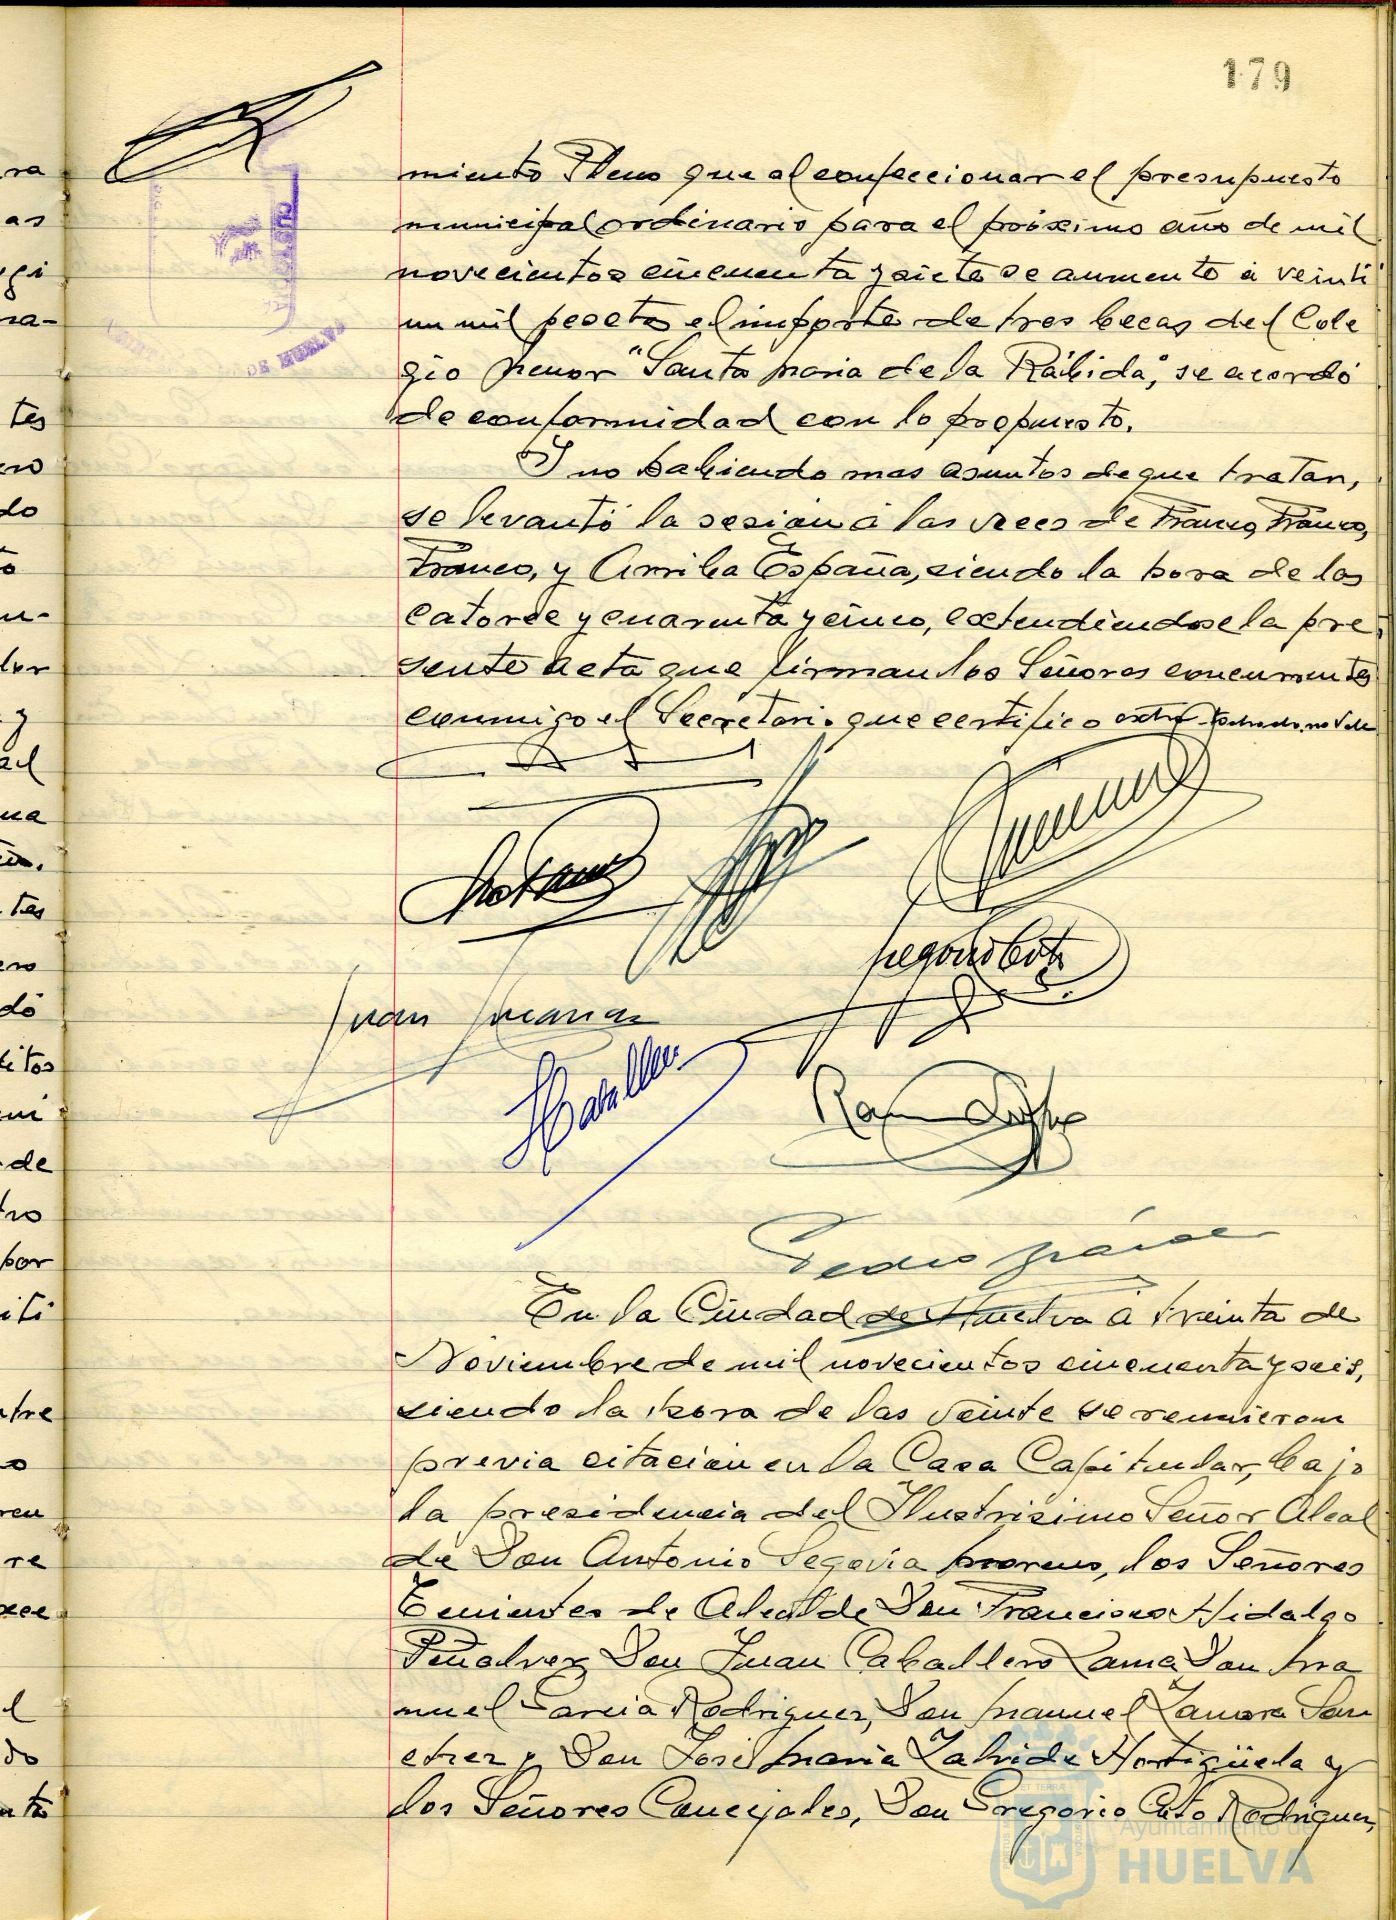 179
miento Pleno que al confeccionar el presupuesto
municipal ordinario para el próximo año de mil
novecientos cincuenta y siete se aumente a veinti
un mil pesetas el importe de tres becas del Cole
gio menor "Santa Maria de la Rábida", se acordó
de conformidad con lo propuesto.
Y no habiendo mas asuntos de que tratar,
se levantó la sesión a las voces de Franco, Franco,
Franco, y Arriba España, siendo la hora de las
catorce y cuarenta y cinco, extendiendose la pre-
sente acta que firman los Señores concurrentes
conmigo el Secretario que certifico no vale
Juan
HCaballero
Gregorio Coto
Ramon
Pedro
En la Ciudad de Huelva a treinta de
Noviembre de mil novecientos cincuenta y seis,
siendo la hora de las veinte se reunieron
previa citacion en la Casa Capitular, bajo
la presidencia del Ilustrisimo Señor Alcal
de Don Antonio Segovia Moreno, los Señores
Tenientes de Alcalde Don Francisco Hidalgo
Peñalver, Don Juan Caballero Lama, Don Ma
nuel Garcia Rodriguez, Don Manuel Zamora San
chez y Don José Maria Hortigüela y
los Señores Concejales, Don Gregorio Coto Rodriguez,
CUSTODIA
DE HUELVA
Ayuntamiento de
HUELVA
ra
as
gi
ra-
tes
ero
do
to
u-
lor
y
al
tes
ero
dó
itos
de
tro
por
iti
re
l
do